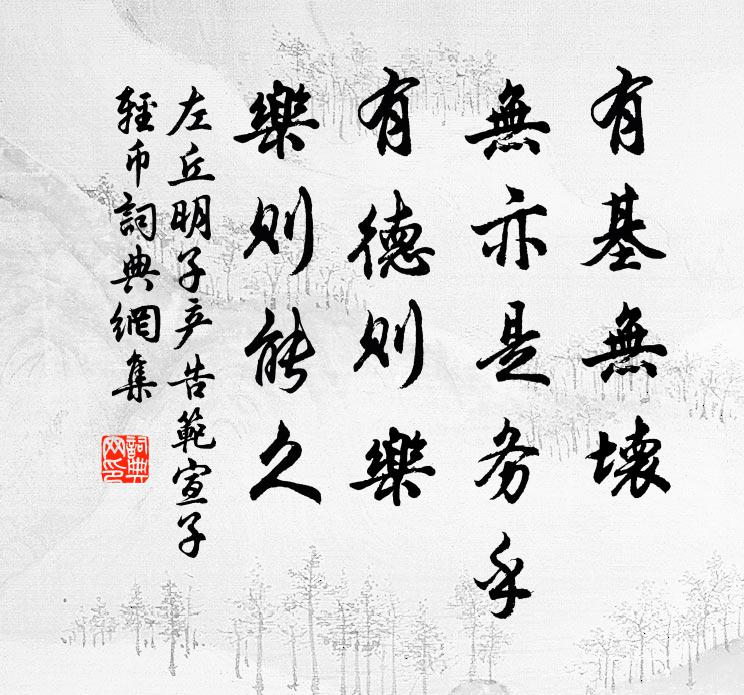 有基無壞
無亦是务乎
有德则樂
樂则能久
左丘明子产告範宣子
輕币詞典網集
詞典网印